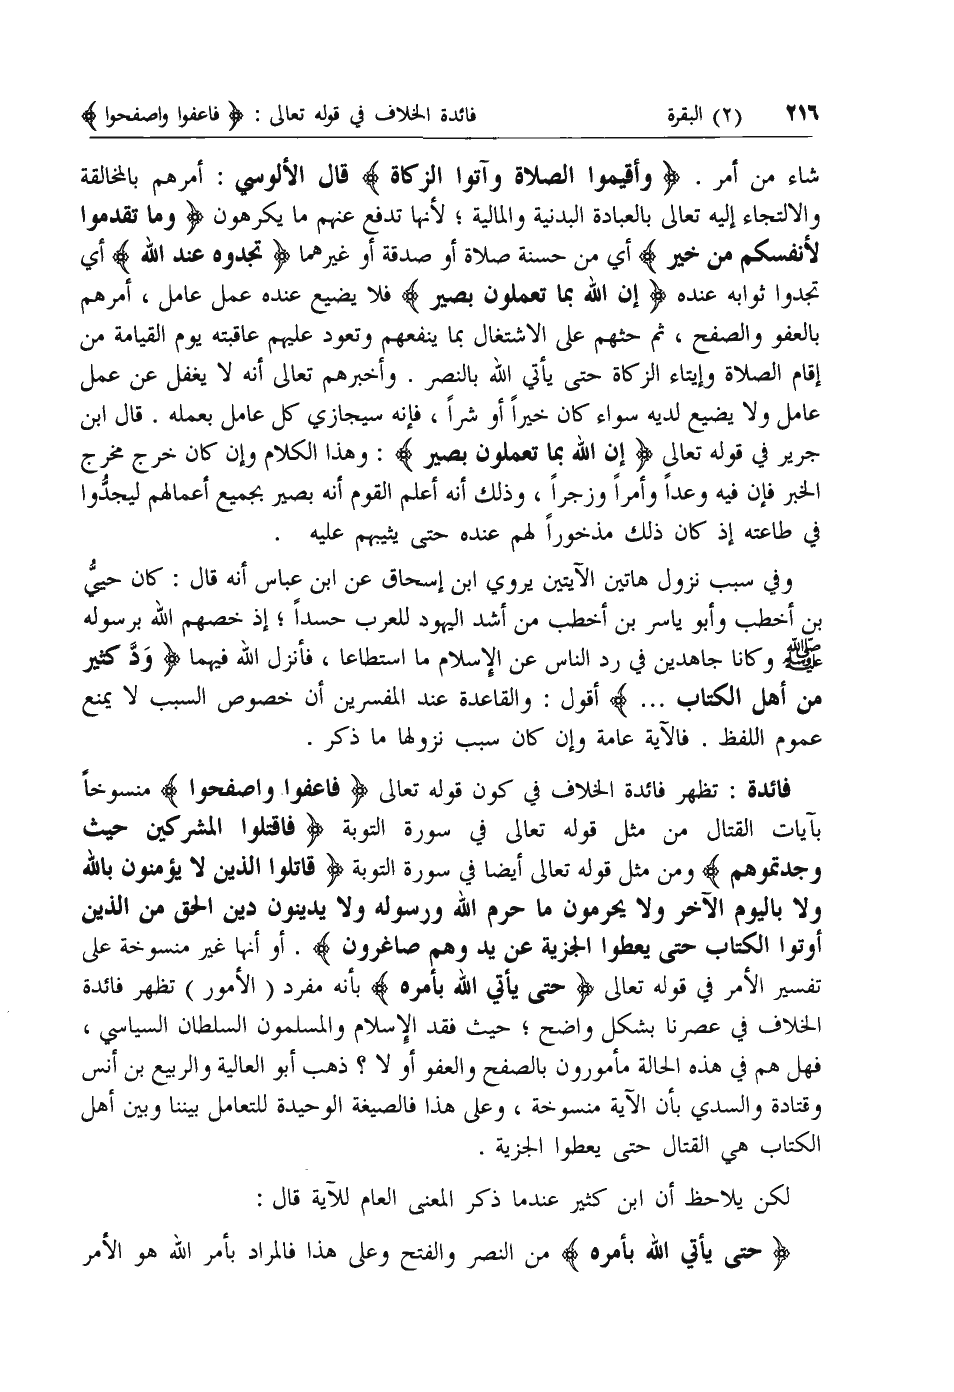 ٢١٦ (٢) البقرة فائدة الخلاف في قوله تعالى : ﴿ فاعفوا واصفحوا ﴾
شاء من أمر . ﴿ وأقيموا الصلاة وآتوا الزكاة ﴾ قال الألوسي : أمرهم بالمخالقة
والالتجاء إليه تعالى بالعبادة البدنية والمالية ؛ لأنها تدفع عنهم ما يكرهون ﴿ وما تقدموا
لأنفسكم من خير ﴾ أي من حسنة صلاة أو صدقة أو غيرهما ﴿ تجدوه عند الله ﴾ أي
تجدوا ثوابه عنده ﴿ إن الله بما تعملون بصير ﴾ فلا يضيع عنده عمل عامل ، أمرهم
بالعفو والصفح ، ثم حثهم على الاشتغال بما ينفعهم وتعود عليهم عاقبته يوم القيامة من
إقام الصلاة وإيتاء الزكاة حتى يأتي الله بالنصر . وأخبرهم تعالى أنه لا يغفل عن عمل
عامل ولا يضيع لديه سواء كان خيراً أو شراً ، فإنه سيجازي كل عامل بعمله . قال ابن
جرير في قوله تعالى ﴿ إن الله بما تعملون بصير ﴾ : وهذا الكلام وإن كان خرج مخرج
الخبر فإن فيه وعداً وأمراً وزجراً ، وذلك أنه أعلم القوم أنه بصير بجميع أعمالهم ليجدُّوا
في طاعته إذ كان ذلك مذخوراً لهم عنده حتى يثيبهم عليه .
وفي سبب نزول هاتين الآيتين يروي ابن إسحاق عن ابن عباس أنه قال : كان حييُّ
بن أخطب وأبو ياسر بن أخطب من أشد اليهود للعرب حسداً ؛ إذ خصهم الله برسوله
ﷺ وكانا جاهدين في رد الناس عن الإسلام ما استطاعا ، فأنزل الله فيهما ﴿ وَدَّ كثير
من أهل الكتاب ... ﴾ أقول : والقاعدة عند المفسرين أن خصوص السبب لا يمنع
عموم اللفظ . فالآية عامة وإن كان سبب نزولها ما ذكر .
فائدة : تظهر فائدة الخلاف في كون قوله تعالى ﴿ فاعفوا واصفحوا ﴾ منسوخاً
بآيات القتال من مثل قوله تعالى في سورة التوبة ﴿ فاقتلوا المشركين حيث
وجدتموهم ﴾ ومن مثل قوله تعالى أيضا في سورة التوبة ﴿ قاتلوا الذين لا يؤمنون بالله
ولا باليوم الآخر ولا يحرمون ما حرم الله ورسوله ولا يدينون دين الحق من الذين
أوتوا الكتاب حتى يعطوا الجزية عن يد وهم صاغرون ﴾ . أو أنها غير منسوخة على
تفسير الأمر في قوله تعالى ﴿ حتى يأتي الله بأمره ﴾ بأنه مفرد ( الأمور ) تظهر فائدة
الخلاف في عصرنا بشكل واضح ؛ حيث فقد الإسلام والمسلمون السلطان السياسي ،
فهل هم في هذه الحالة مأمورون بالصفح والعفو أو لا ؟ ذهب أبو العالية والربيع بن أنس
وقتادة والسدي بأن الآية منسوخة ، وعلى هذا فالصيغة الوحيدة للتعامل بيننا وبين أهل
الكتاب هي القتال حتى يعطوا الجزية .
لكن يلاحظ أن ابن كثير عندما ذكر المعنى العام للآية قال :
﴿ حتى يأتي الله بأمره ﴾ من النصر والفتح وعلى هذا فالمراد بأمر الله هو الأمر